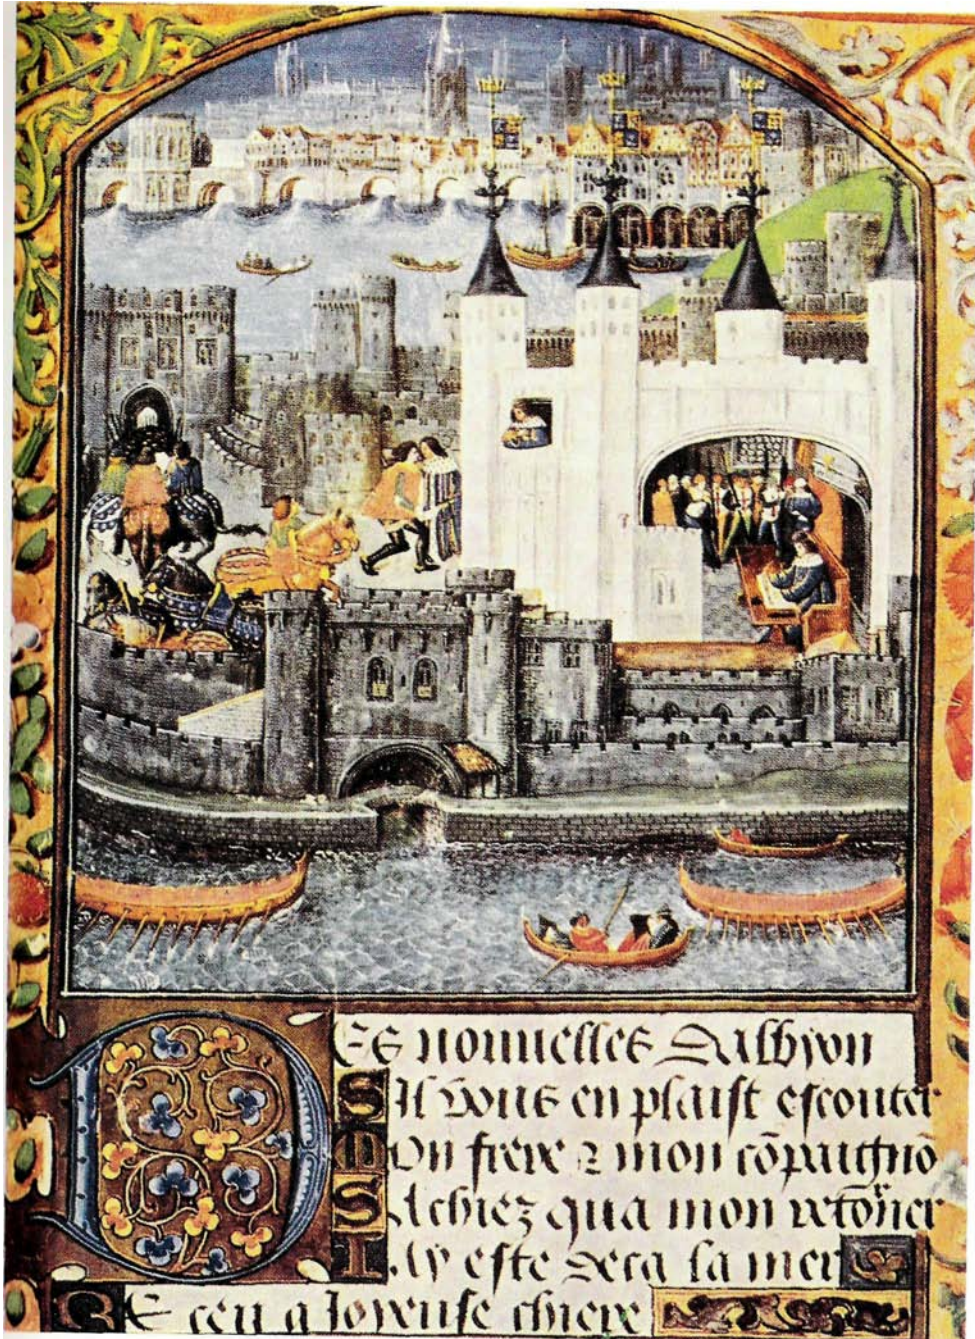 Des nouuelles d'Albyon
Sil vous en plaist escouter
Mon frere ⁊ mon cōpaignō
Sachiez qua mon retōner
Iay este deca la mer
Receu a Joyeuse chiere